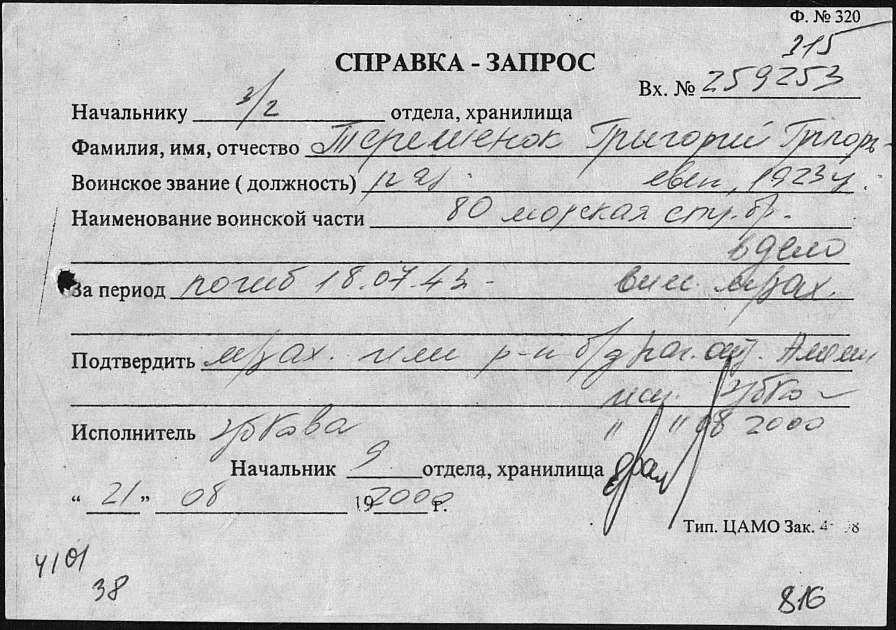 Ф. № 320
215
СПРАВКА - ЗАПРОС
Вх. № 259253
Начальнику 3/2 отдела, хранилища
Фамилия, имя, отчество Теременок Григорий Григорь-
Воинское звание ( должность) ряд. евич, 1923г.
Наименование воинской части 80 морская стр. бр.
в дело
За период погиб 18.07.43 -
Подтвердить или р-н
Исполнитель Зубкова
" " 08 2000
Начальник 9 отдела, хранилища
" 21 " 08 19 2000 г.
Тип. ЦАМО Зак.
4101
38
816